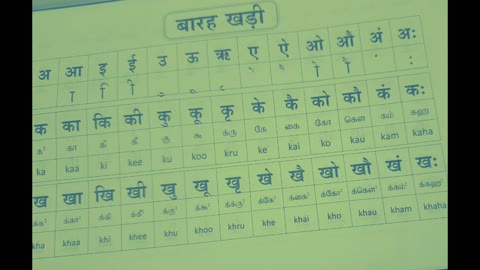 बारह खड़ी
अ आ इ ई उ ऊ ऋ ए ऐ ओ औ अं अः
क का कि की कु कू कृ के कै को कौ कं कः
க¹ கா கி கீ கு கூ க்ரு கே கை கோ கௌ கம் கஹ
ka kaa ki kee ku koo kru ke kai ko kau kam kaha
ख खा खि खी खु खू खृ खे खै खो खौ खं खः
kha khaa khi khee khu khoo khru khe khai kho khau kham khaha